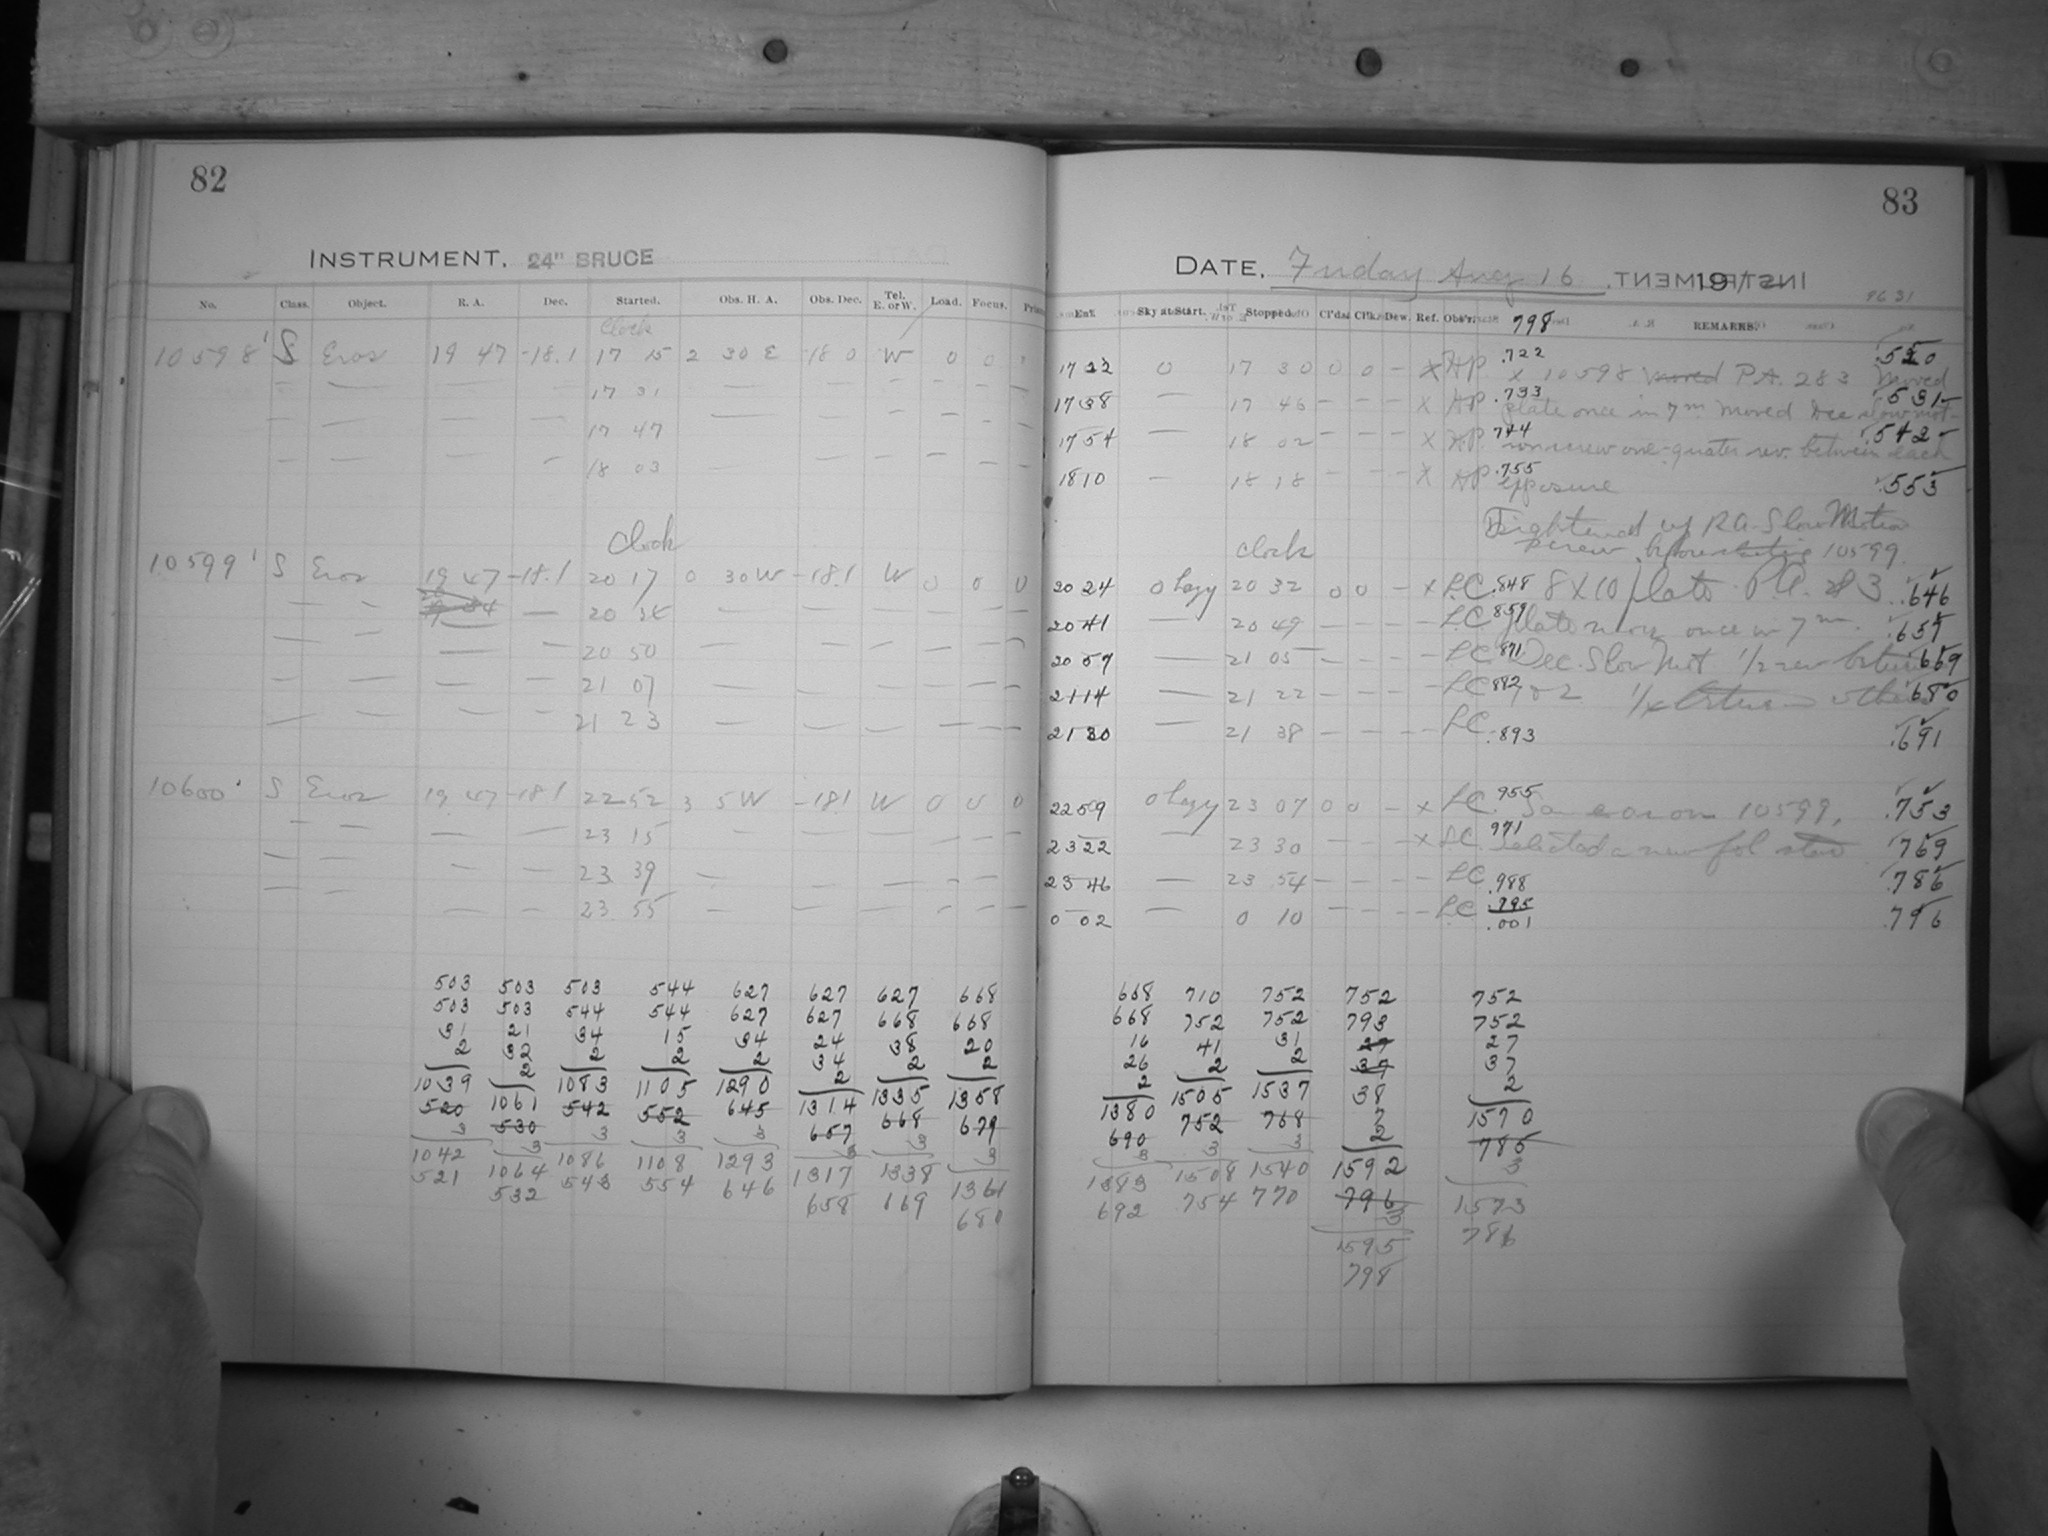 82
INSTRUMENT. 24" BRUCE
No. Class. Object. R. A. Dec. Started. Obs. H. A. Obs. Dec. Tel. E. or W. Load. Focus.
Clock
10598 S Eros 19 47 -18.1 17 15 2 30 E -18 0 W 0 0
17 31
17 47
18 03
Clock
10599 S Eros 19 47 -18.1 20 17 0 30 W -18.1 W 0 0 0
20
20 50
21 07
21 23
10600 S Eros 19 47 -18.1 22 52 3 5 W -18.1 W 0 0 0
23 15
23 39
23 55
503 503 503 544 627 627 627 668
503 503 544 544 627 627 668 668
31 21 34 15 34 24 38 20
2 32 2 2 2 34 2 2
1039 2 1083 1105 1290 2 1335 1358
520 1061 542 552 645 1314 668 679
3 530 3 3 3 657 3 3
1042 3 1086 1108 1293 3 1338 1361
521 1064 543 554 646 1317 669 680
532 658
83
DATE, Friday Aug 16 191
Sky at Start. Stopped. Cl'ds Cl'k. Dew. Ref. Obs'r. 798 REMARKS.
17 22 0 17 30 0 0 - X HP .722 X 10598 moved P.A. 283 Moved .520
17 38 17 46 X HP .733 plate once in 7m. Moved Dec slow mot- .531
17 54 18 02 X HP 744 ion screw one-quater rev. between each .542
18 10 18 18 X HP .755 exposure .553
Tightened up RA Slow Motion
screw before 10599
clock
20 24 0 hazy 20 32 0 0 - X LC .848 8 X 10 plate. P.A. 283 .646
20 41 20 49 LC 859 plate move once in 7m. .657
20 57 21 05 LC 871 Dec. Slow Mot 1/2 rev between 669
21 14 21 22 LC 882 1 & 2 1/4 between others 680
21 30 21 38 LC .893 .691
22 59 0 hazy 23 07 0 0 - X LC 955 Same as on 10599. .753
23 22 23 30 X LC 971 selected a new fol star 769
23 46 23 54 LC .988 .786
0 02 0 10 LC .795 .796
.001
668 710 752 752 752
668 752 752 793 752
16 41 31 27 27
26 2 2 37 37
2 1505 1537 38 2
1380 752 768 2 1570
690 3 3 2 785
3 1508 1540 1592 3
1383 754 770 796 1573
692 3 786
1595
798